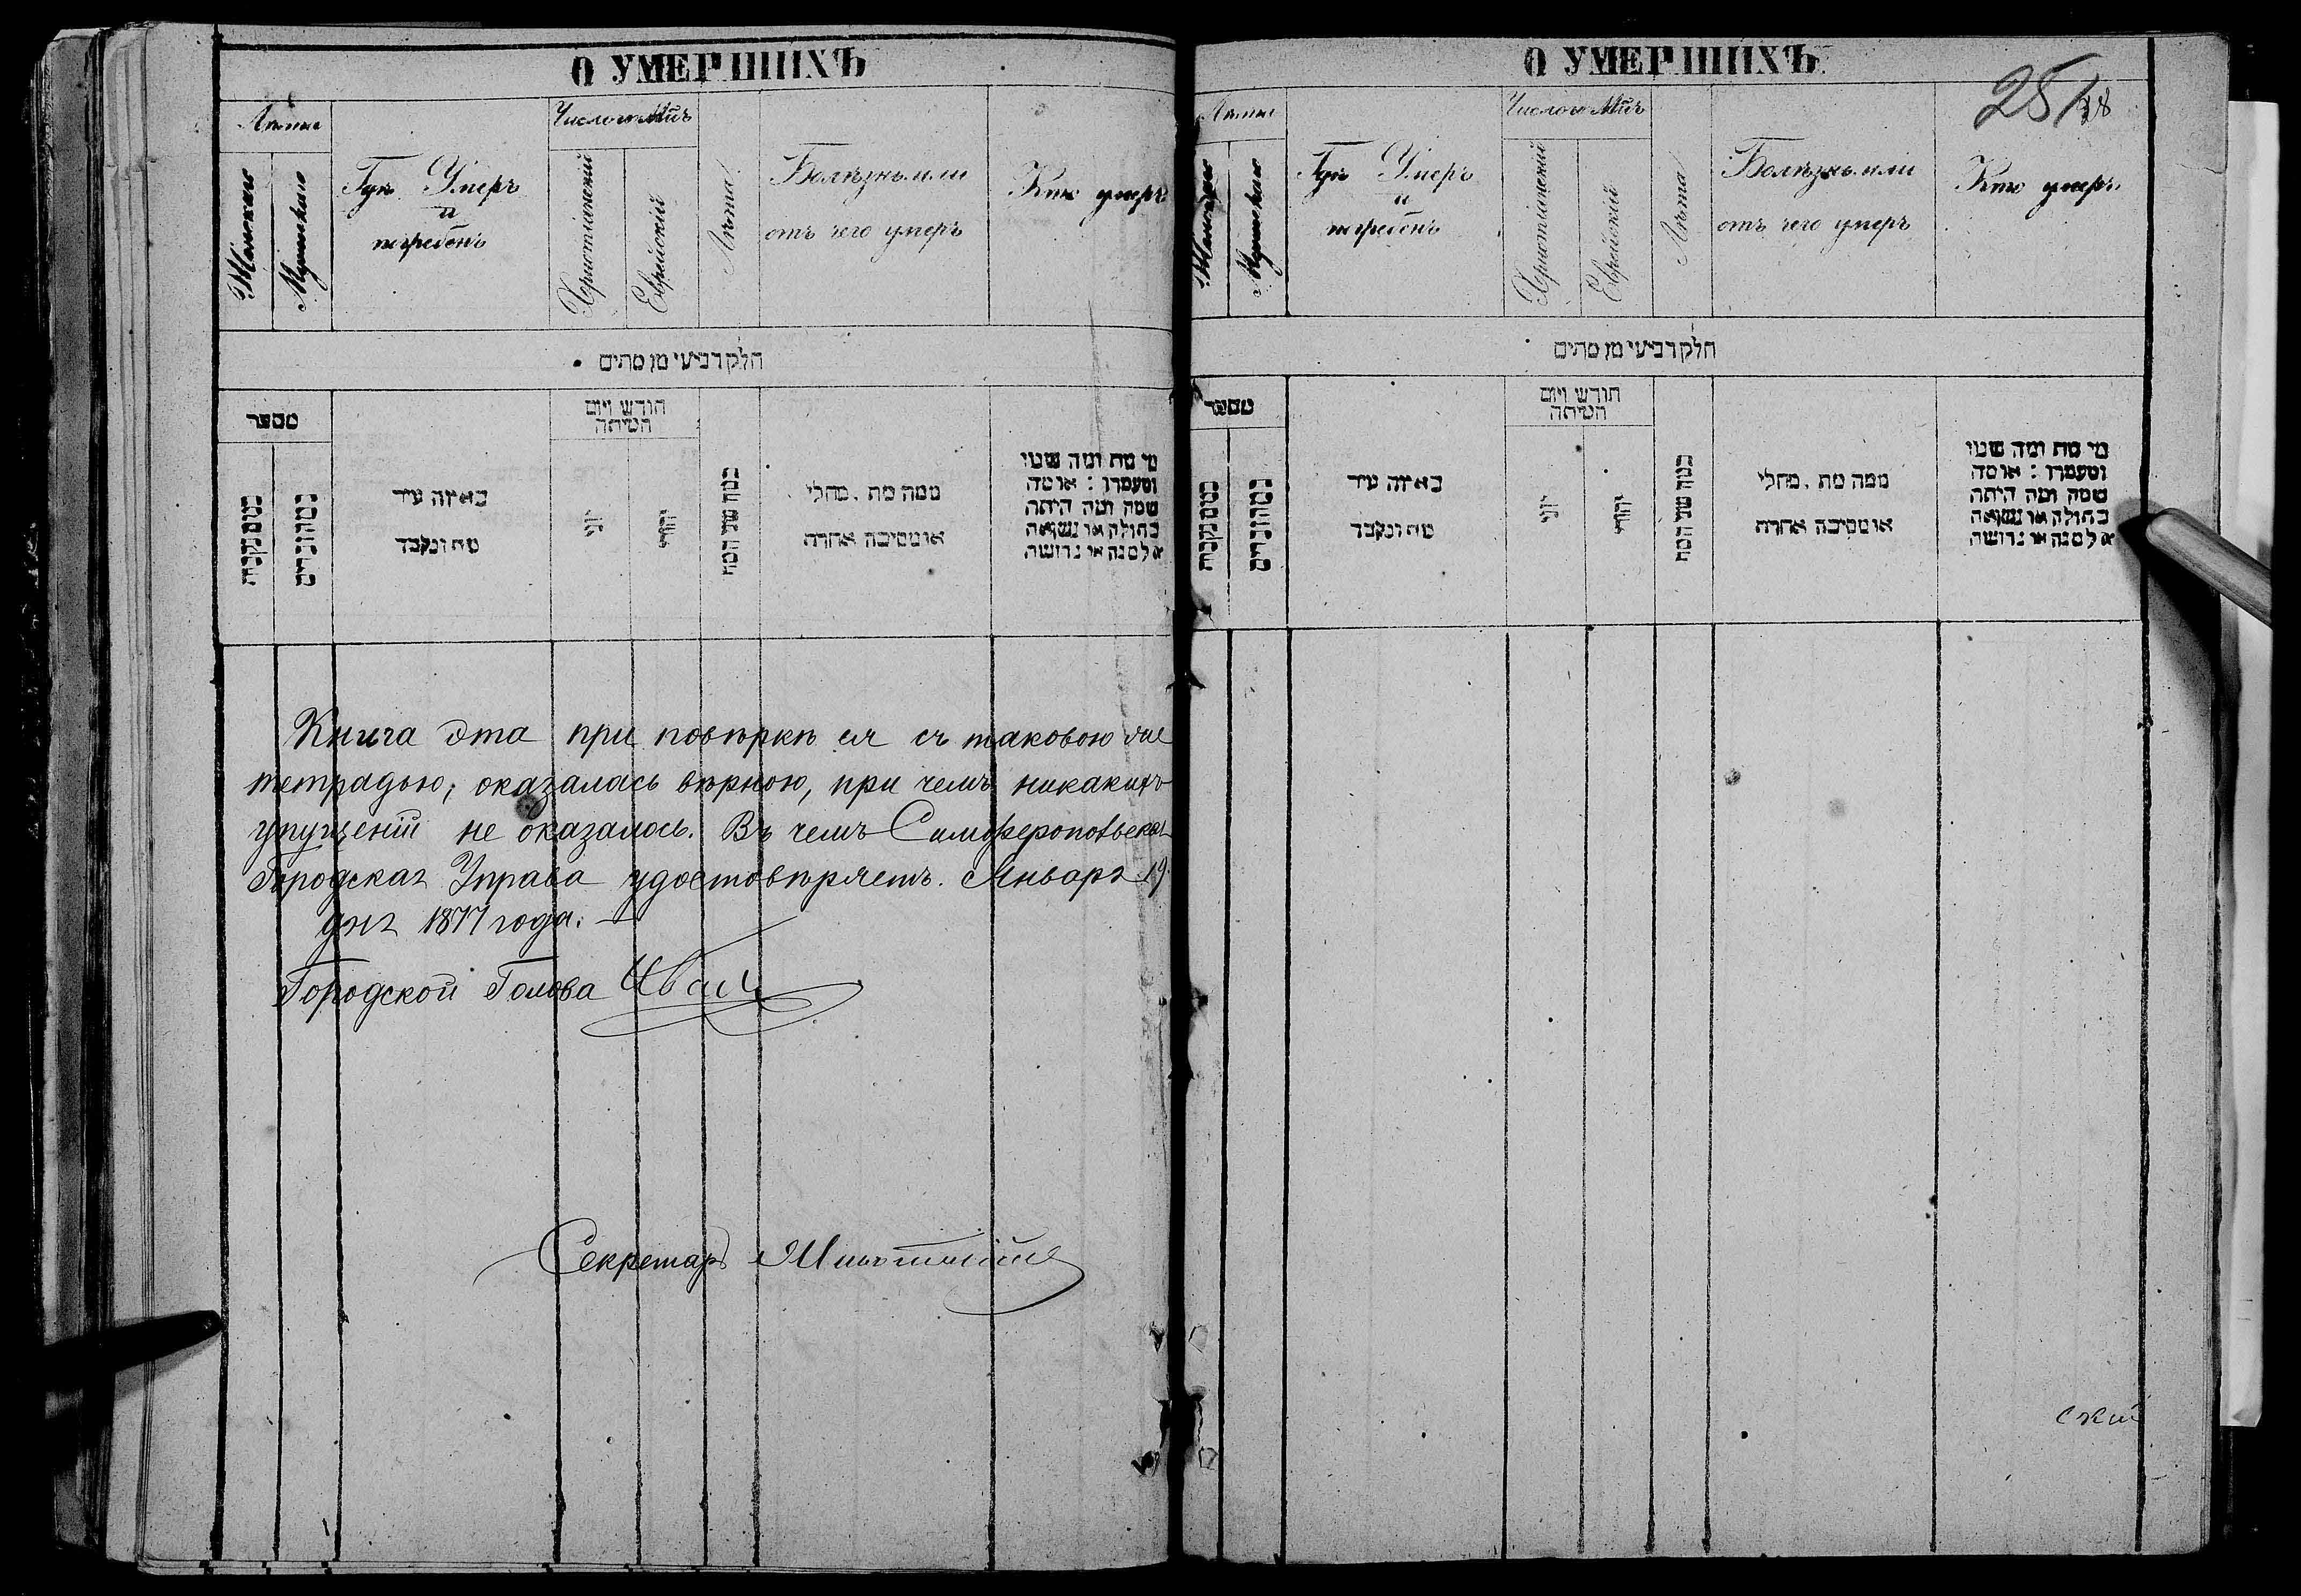 О УМЕРШИХЪ
Лѣта
Женскаго
Мужскаго
Гдѣ Умеръ
и
погребенъ
Число и Мѣсяцъ
Христіанскій
Еврейскій
Лѣта
Болѣзнь или
отъ чего умеръ
Кто умеръ
חלק רביעי מן מתים
מספר
כמה נקבות
כמה זכרים
באיזה עיר
מת ונקבר
חודש ויום
המיתה
יוני
יהודי
כמה שני המת
ממה מת . מחלי
או מסיבה אחרת
מי מת ומה שמו
ומעמדו : או מה
שמה ומה היתה
בתולה או נשואה
אלמנה או גרושה
Книга эта при повѣркѣ ея съ таковою же
тетрадью, оказалась вѣрною, при чемъ никакихъ
упущеній не оказалось. Въ чемъ Симферопольская
Городская Управа удостовѣряетъ. Января 19
дня 1877 года.
Городской Голова
Секретарь
О УМЕРШИХЪ
251
Лѣта
Женскаго
Мужскаго
Гдѣ Умеръ
и
погребенъ
Число и Мѣсяцъ
Христіанскій
Еврейскій
Лѣта
Болѣзнь или
отъ чего умеръ
Кто умеръ
חלק רביעי מן מתים
מספר
כמה נקבות
כמה זכרים
באיזה עיר
מת ונקבר
חודש ויום
המיתה
יוני
יהודי
כמה שני המת
ממה מת . מחלי
או מסיבה אחרת
מי מת ומה שמו
ומעמדו : או מה
שמה ומה היתה
בתולה או נשואה
אלמנה או גרושה
скій